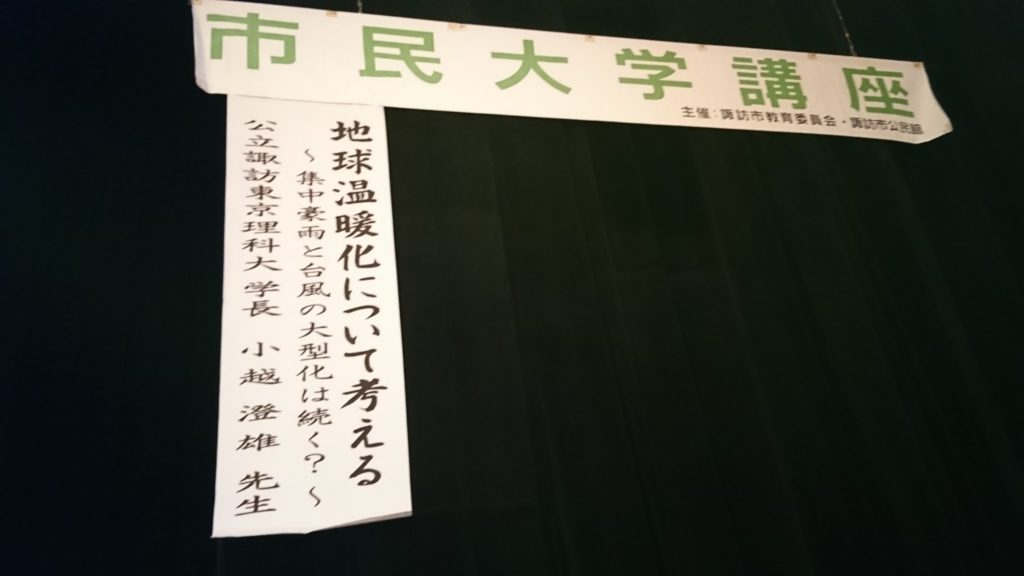 市民大学講座
主催：諏訪市教育委員会・諏訪市公民館
地球温暖化について考える
～集中豪雨と台風の大型化は続く？～
公立諏訪東京理科大学長　小越　澄雄　先生